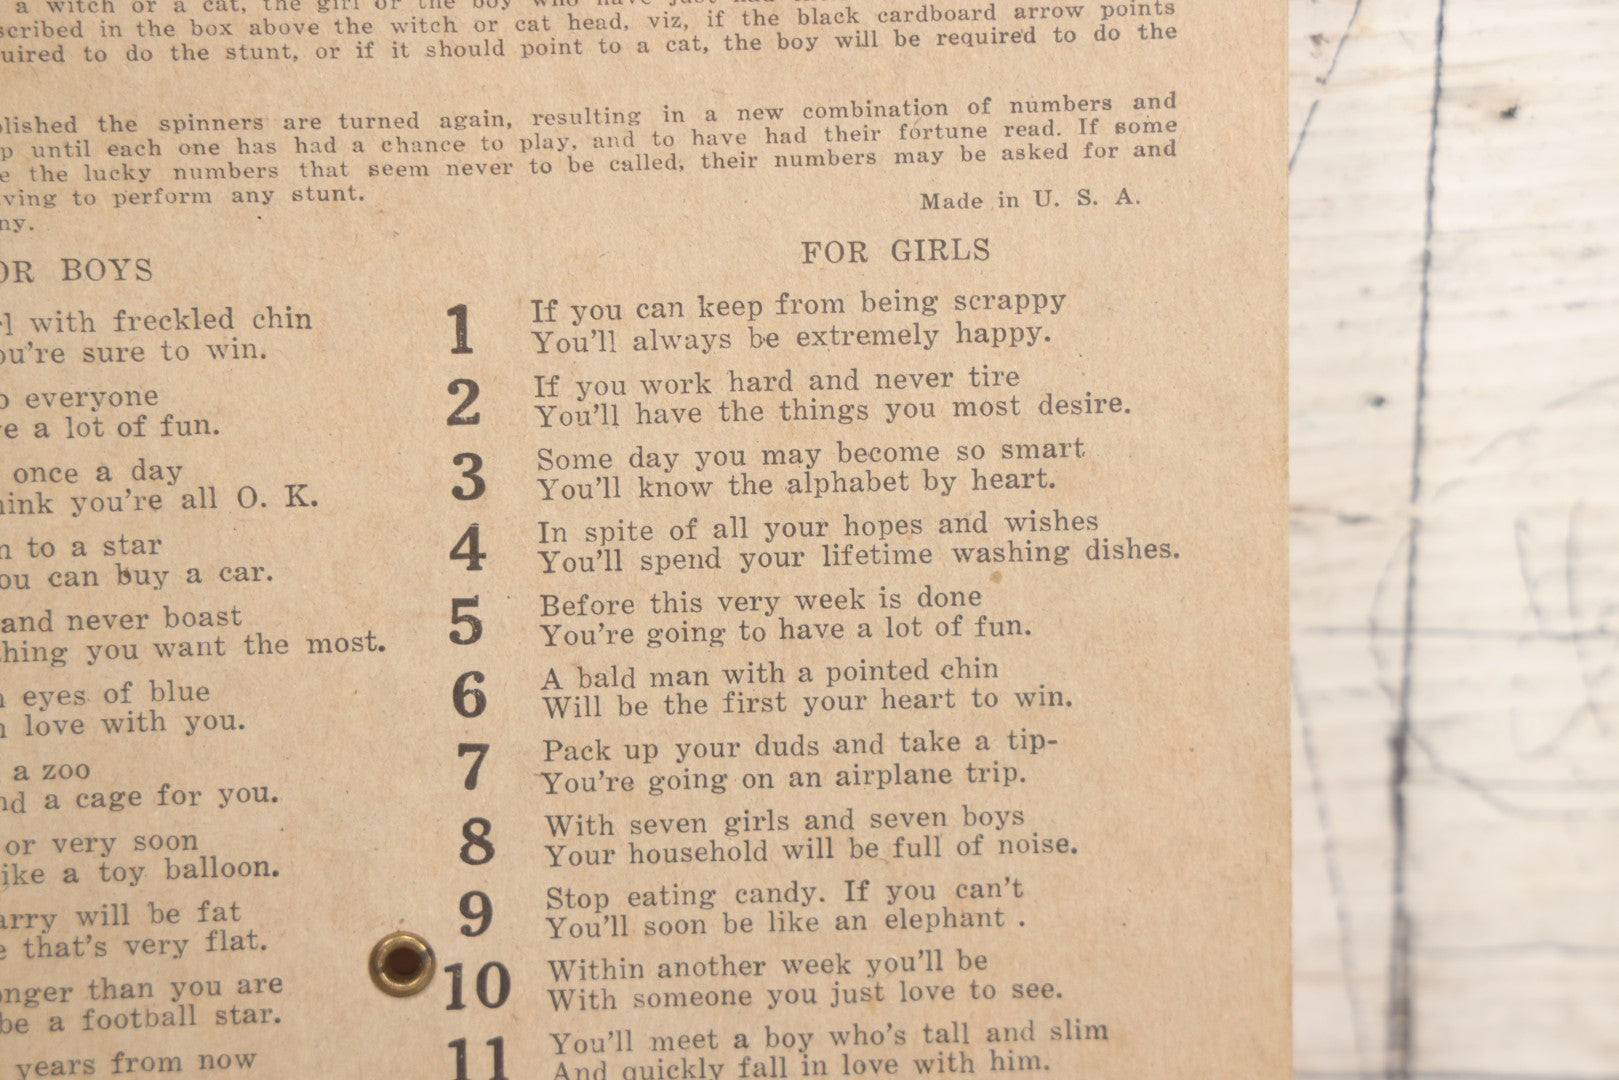 a witch or a cat, the girl or the boy who have just had
scribed in the box above the witch or cat head, viz, if the black cardboard arrow points
uired to do the stunt, or if it should point to a cat, the boy will be required to do the
lished the spinners are turned again, resulting in a new combination of numbers and
p until each one has had a chance to play, and to have had their fortune read. If some
e the lucky numbers that seem never to be called, their numbers may be asked for and
ving to perform any stunt.
ny.
Made in U. S. A.
OR BOYS
l with freckled chin
ou're sure to win.
o everyone
e a lot of fun.
once a day
hink you're all O. K.
n to a star
ou can buy a car.
and never boast
hing you want the most.
n eyes of blue
n love with you.
a zoo
nd a cage for you.
or very soon
ike a toy balloon.
arry will be fat
e that's very flat.
onger than you are
be a football star.
years from now
FOR GIRLS
1 If you can keep from being scrappy
You'll always be extremely happy.
2 If you work hard and never tire
You'll have the things you most desire.
3 Some day you may become so smart
You'll know the alphabet by heart.
4 In spite of all your hopes and wishes
You'll spend your lifetime washing dishes.
5 Before this very week is done
You're going to have a lot of fun.
6 A bald man with a pointed chin
Will be the first your heart to win.
7 Pack up your duds and take a tip-
You're going on an airplane trip.
8 With seven girls and seven boys
Your household will be full of noise.
9 Stop eating candy. If you can't
You'll soon be like an elephant .
10 Within another week you'll be
With someone you just love to see.
11 You'll meet a boy who's tall and slim
And quickly fall in love with him.